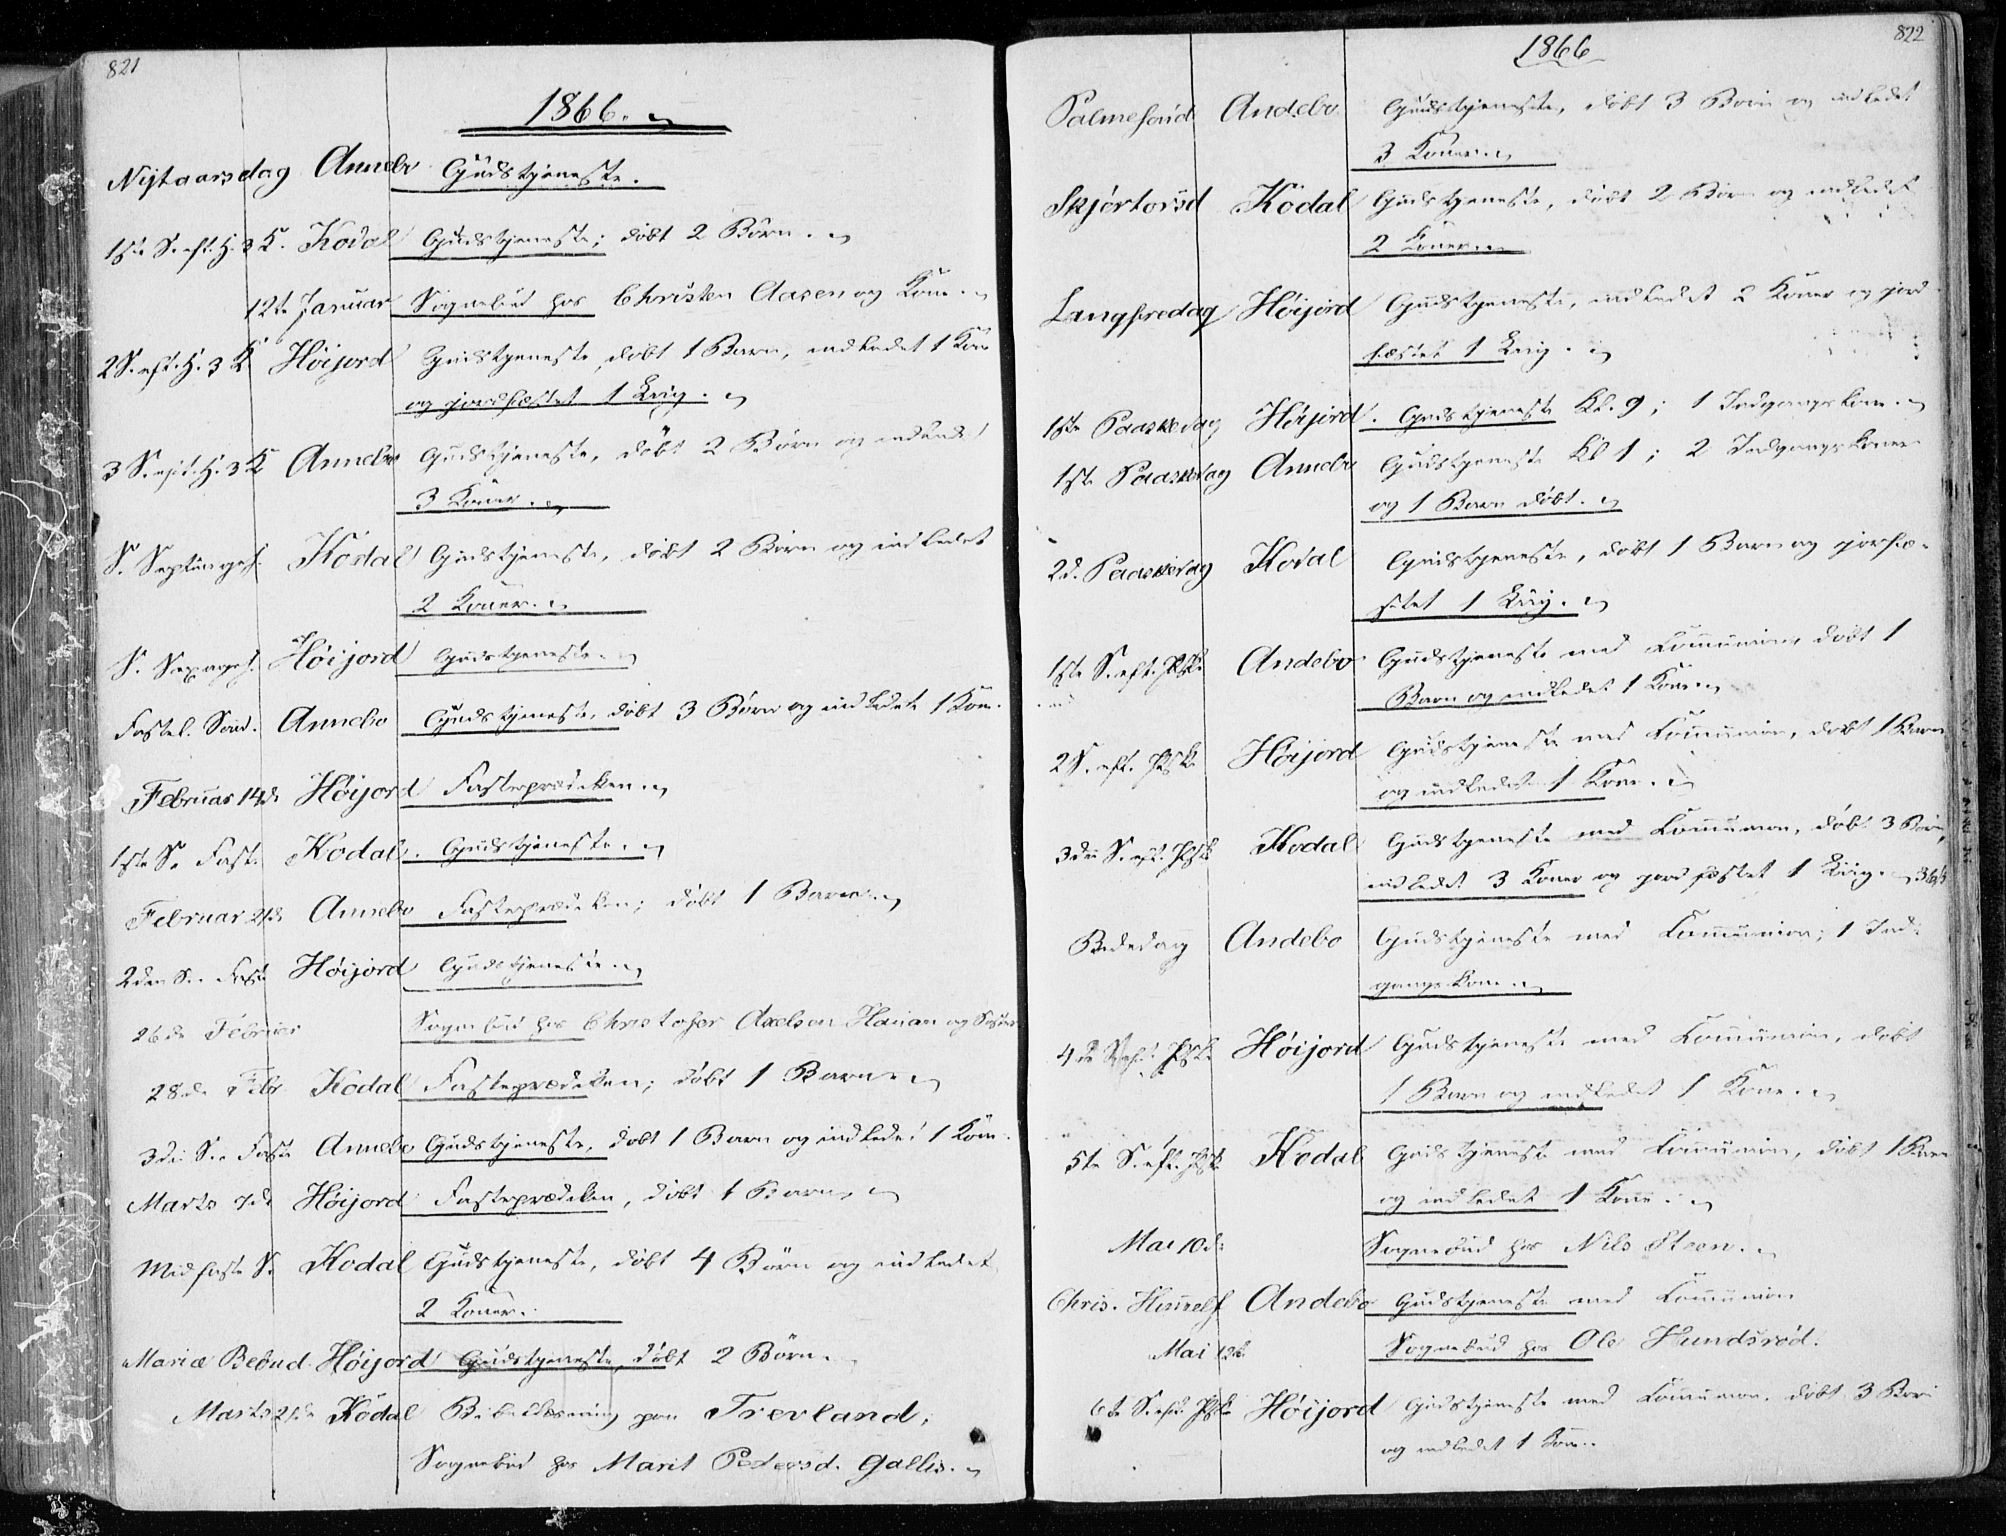 821
1866.
Nijtaarsdag Annebo Gudstjeneste.
1ste S. eft. H. 3 K. Kodal Gudstjeneste; døbt 2 Børn.
12te Januar Sognebud hos Christen Aasen og Kone.
2 S. eft. H. 3 K Höijord Gudstjeneste, døbt 1 Barn, indledet 1 Kone
og jordfæstet 1 Liig.
3 S. eft. H. 3 K Annebo Gudstjeneste, døbt 2 Børn og indledet
3 Koner.
S. Septuages. Kodal Gudstjeneste, døbt 2 Børn og indledet
2 Koner.
S. Sexages. Höijord Gudstjeneste.
Fastel. Sönd. Annebo Gudstjeneste, døbt 3 Børn og indledet 1 Kone.
Februar 14de Höijord Fasteprædiken.
1ste S. i Fast. Kodal. Gudstjeneste.
Februar 21de Annebo Fasteprædiken; døbt 1 Barn.
2den S. i Faste Höijord Gudstjeneste.
26de Februar Sognebud hos Christofer Axelsen og
28de Febr Kodal Fasteprædiken; døbt 1 Barn.
3die S. i Faste Annebo Gudstjeneste, døbt 1 Barn og indledet 1 Kone.
Marts 7de Höijord Fasteprædiken, døbt 1 Barn.
Midfaste S. Kodal Gudstjeneste, døbt 4 Børn og indledet
2 Koner.
Mariæ Bebud. Höijord Gudstjeneste, døbt 2 Børn.
Marts 21de Kodal Bibellæsning paa Trevland;
Sognebud hos Marit Pedersd. Gallis.
822
1866
Palmesönd Andebo Gudstjeneste, døbt 3 Børn og indledet
3 Koner.
Skjertorsd Kodal Gudstjeneste, døbt 2 Børn og indledet
2 Koner.
Langfredag Höijord Gudstjeneste, indledet 2 Koner og jord-
fæstet 1 Liig.
1ste Paaskedag Höijord. Gudstjeneste Kl. 9; 1 Indgangskone.
1ste Paaskedag Annebo Gudstjeneste Kl 1; 2 Indgangskoner
og 1 Barn døbt.
2d. Paaskedag Kodal Gudstjeneste, døbt 1 Barn og jordfæ-
stet 1 Liig.
1ste S. eft. Pske Andebo Gudstjeneste med Communion, døbt 1
Barn og indledet 1 Kone.
2 S. eft. Pske Höijord Gudstjeneste med Communion, døbt 1 Barn
og indledet 1 Kone.
3die S. eft. Pske Kodal Gudstjeneste med Communion, døbt 3 Børn,
indledet 3 Koner og jordfæstet 1 Liig.
Bededag Andebo Gudstjeneste med Communion; 1 Ind-
gangskone.
4de S. eft. Pske Höijord Gudstjeneste med Communion, døbt
1 Barn og indledet 1 Kone.
5te S. eft. Pske Kodal Gudstjeneste med Communion, døbt 1 Barn
og indledet 1 Kone.
Mai 10de Sognebud hos Nils Steen.
Chris. Himelf Andebo Gudstjeneste med Communion
Mai 12te Sognebud hos Ole Hundsröd.
6te S. eft. Pske Höijord Gudstjeneste med Communion. døbt 3 Børn
og indledet 1 Kone.